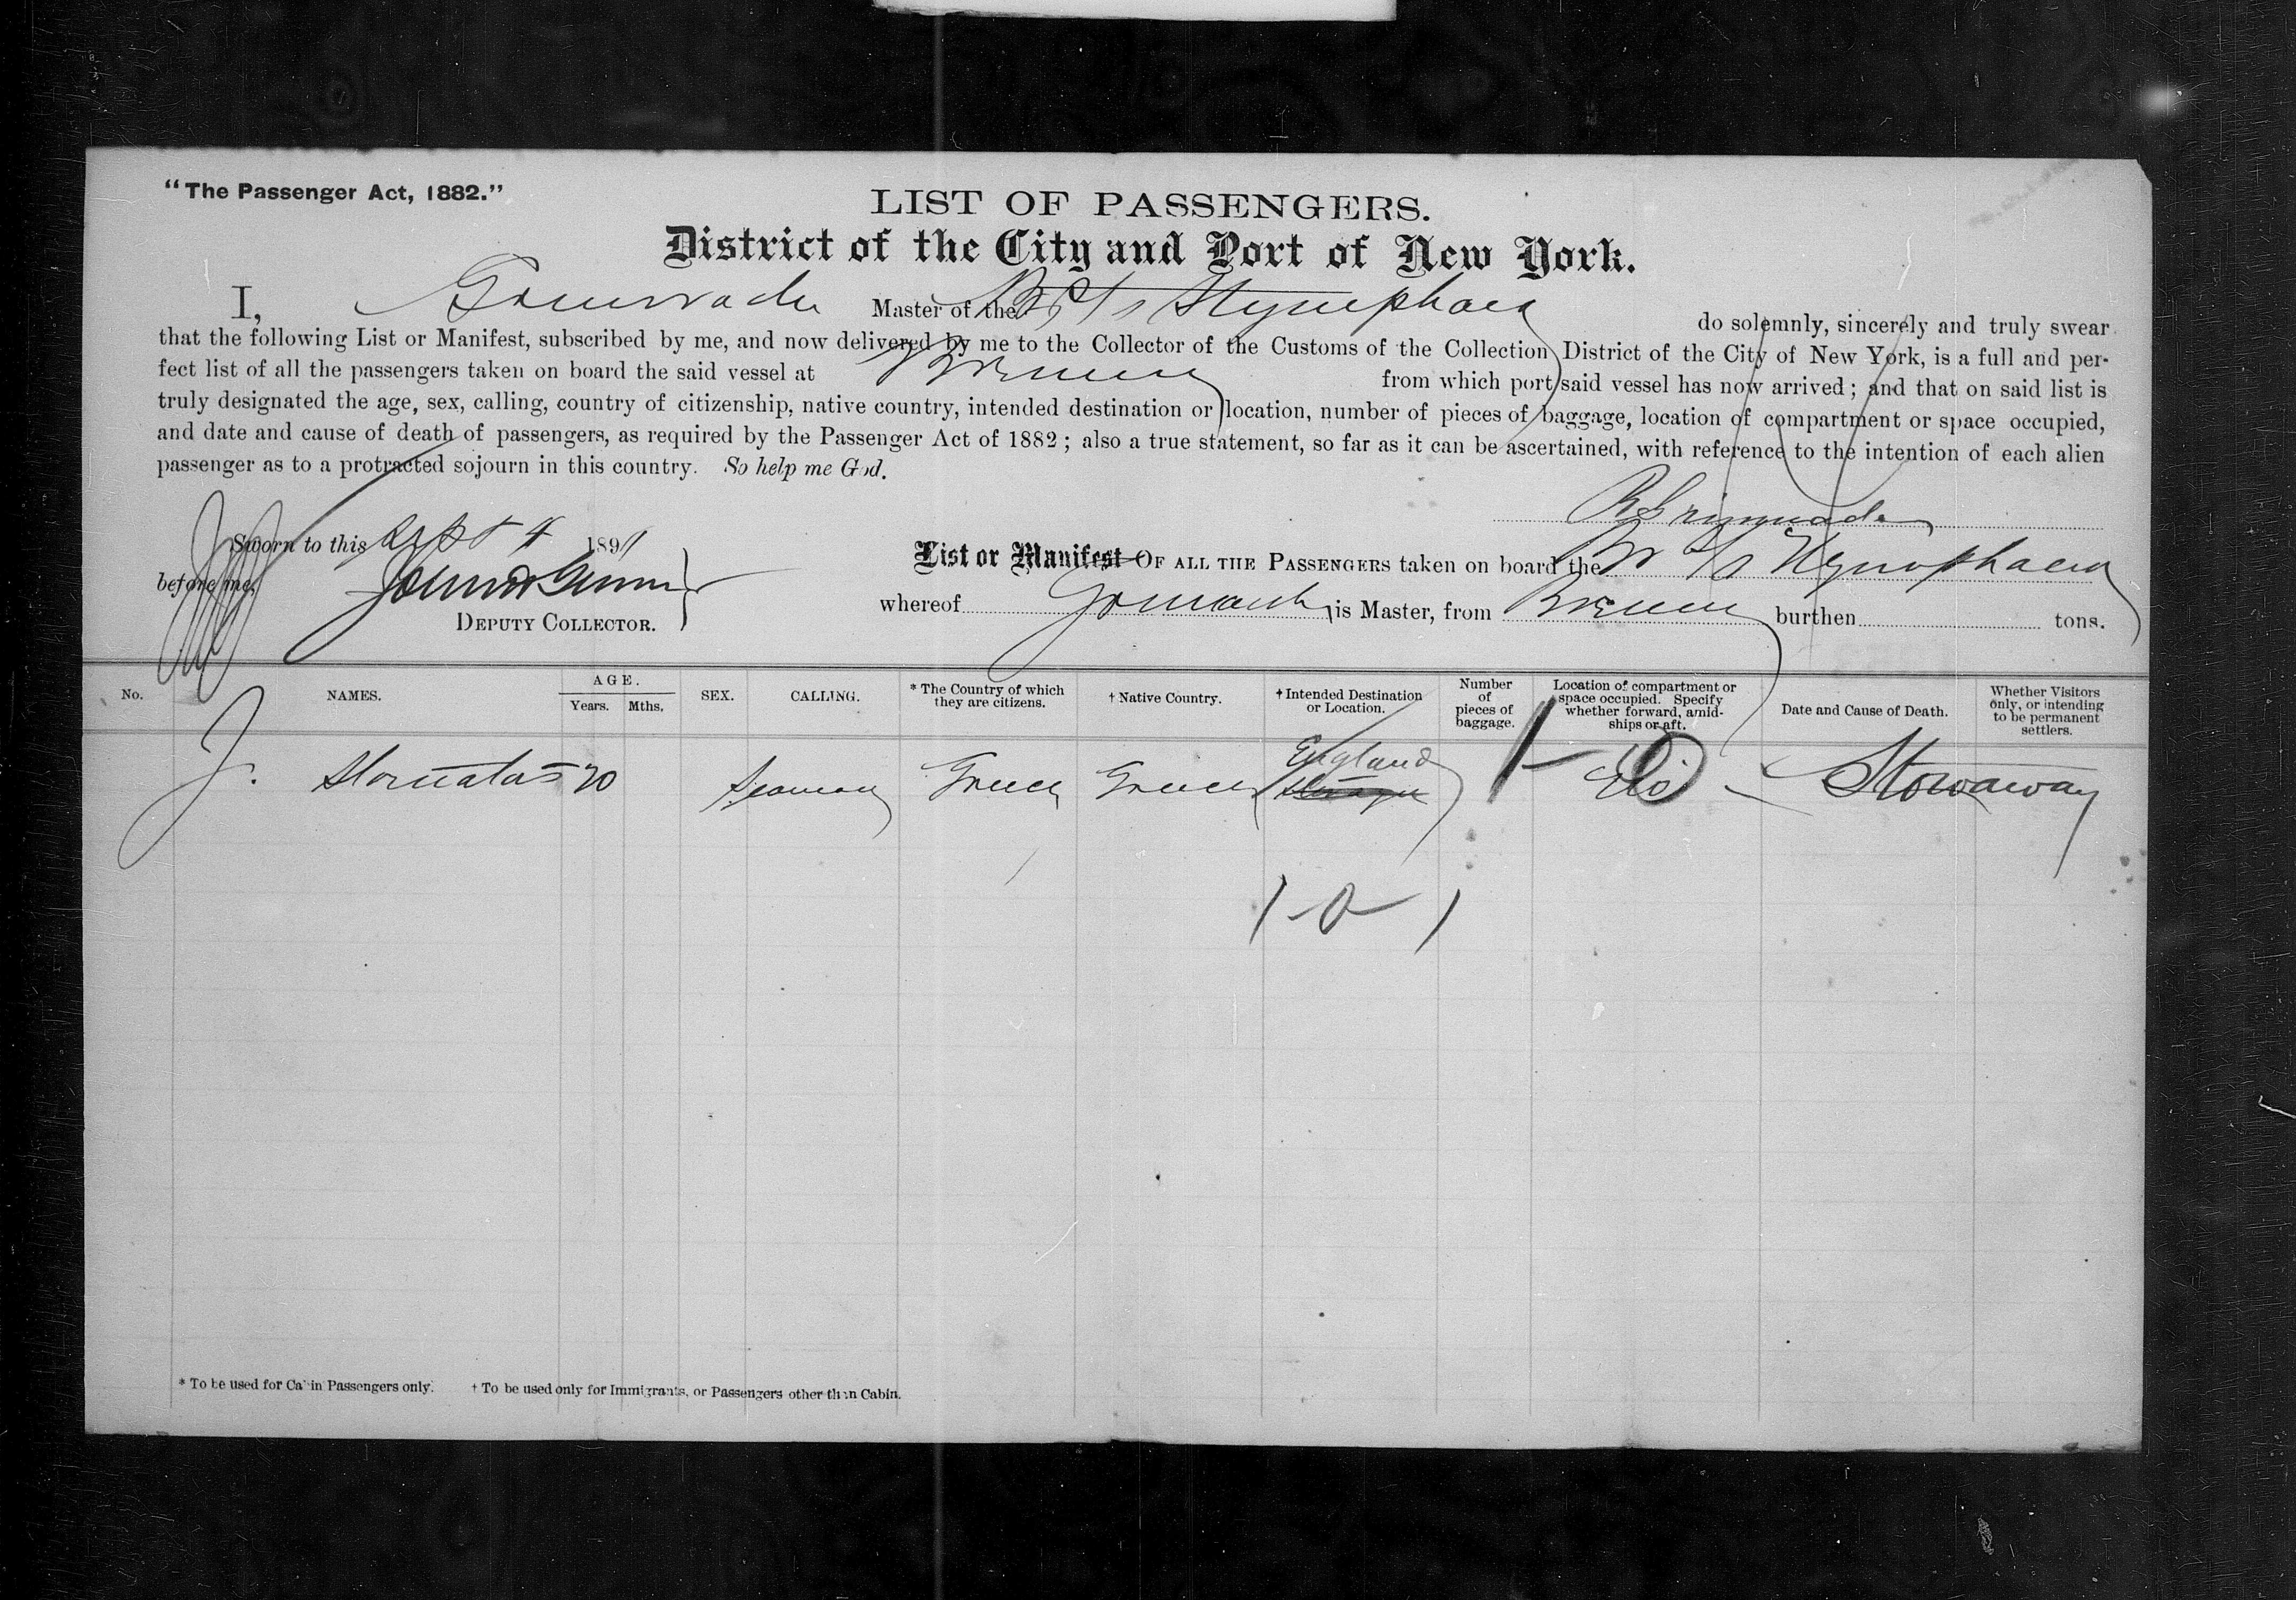 "The Passenger Act, 1882."
LIST OF PASSENGERS.
District of the City and Port of New York.
I, Master of the Nymphaea do solemnly, sincerely and truly swear
that the following List or Manifest, subscribed by me, and now delivered by me to the Collector of the Customs of the Collection District of the City of New York, is a full and per-
fect list of all the passengers taken on board the said vessel at Bremen from which port said vessel has now arrived; and that on said list is
truly designated the age, sex, calling, country of citizenship, native country, intended destination or location, number of pieces of baggage, location of compartment or space occupied,
and date and cause of death of passengers, as required by the Passenger Act of 1882; also a true statement, so far as it can be ascertained, with reference to the intention of each alien
passenger as to a protracted sojourn in this country. So help me God.
Sworn to this Sept 4 1891
before me,
DEPUTY COLLECTOR.
List or Manifest OF ALL THE PASSENGERS taken on board the Nymphaea
whereof is Master, from Bremen burthen tons.
No.
NAMES.
AGE.
Years. Mths.
SEX.
CALLING.
* The Country of which
they are citizens.
† Native Country.
† Intended Destination
or Location.
Number
of
pieces of
baggage.
Location of compartment or
space occupied. Specify
whether forward, amid-
ships or aft.
Date and Cause of Death.
Whether Visitors
only, or intending
to be permanent
settlers.
J. Stomatas 20 Seaman Greece Greece England Stowaway
1 - 0 - 1
* To be used for Cabin Passengers only. † To be used only for Immigrants, or Passengers other than Cabin.